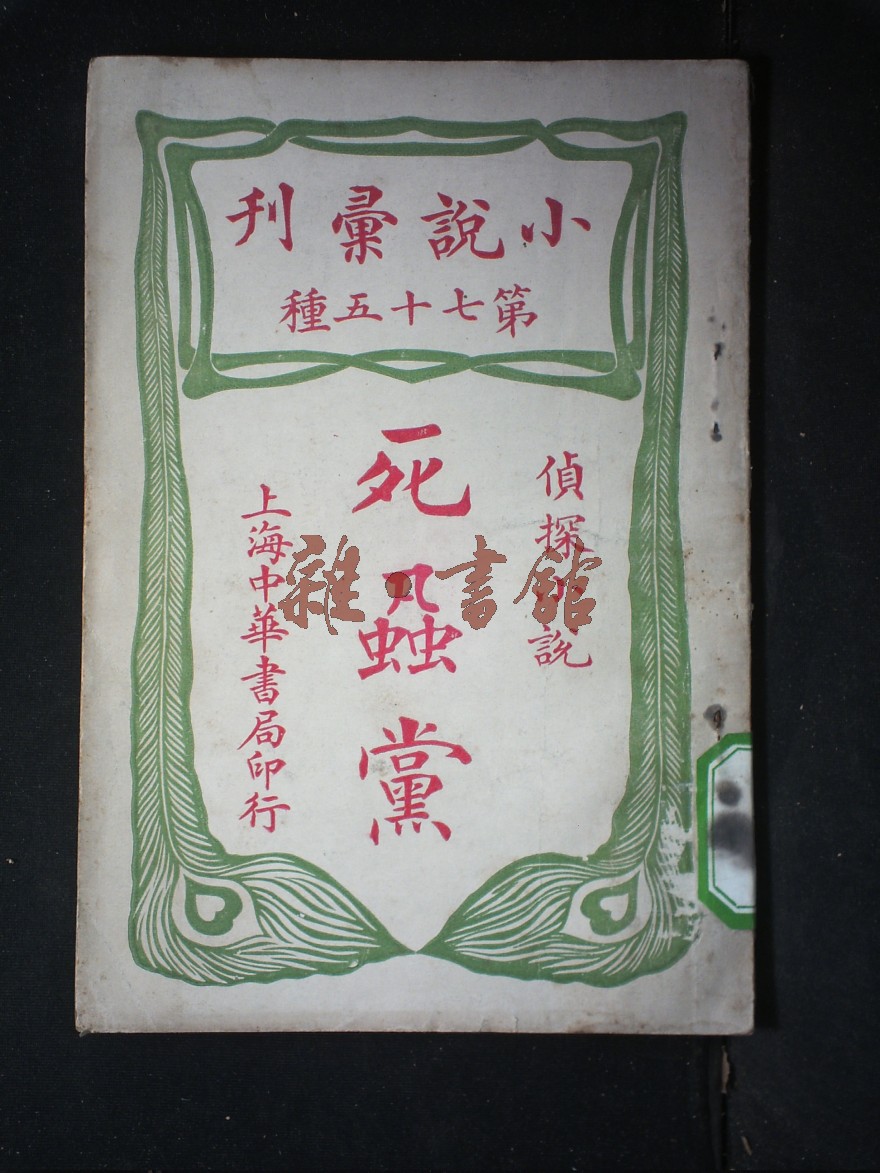 小說彙刊
第七十五種
偵探小說
死蝨黨
上海中華書局印行
雜·書館